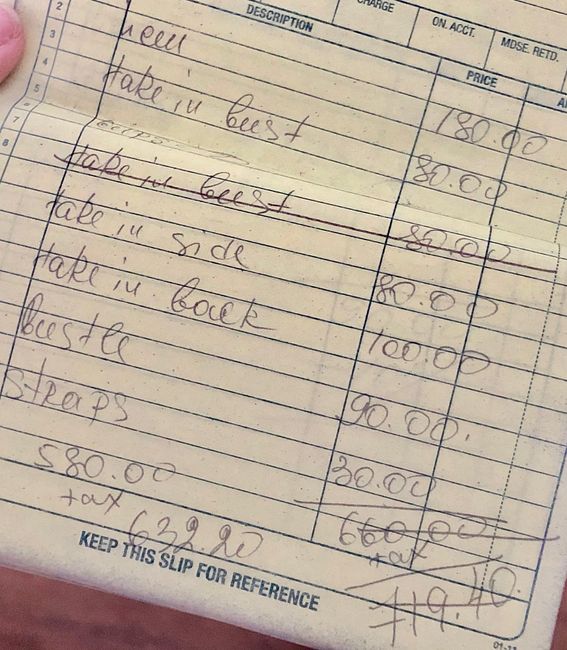 CHARGE ON. ACCT. MDSE. RETD.
DESCRIPTION PRICE
2
3 hem 180.00
4
5 take in bust 80.00
6
7 take in bust 80.00
8 take in side 80.00
take in back 100.00
bustle 90.00.
straps 30.00
580.00 660.00
+ax +ax
632.20 719.40
KEEP THIS SLIP FOR REFERENCE